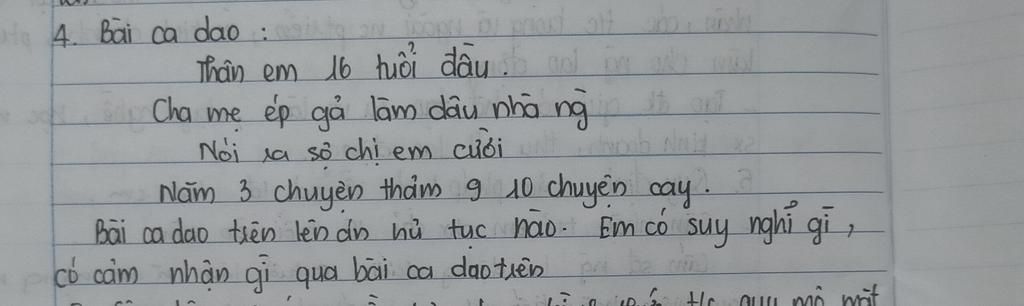 4. Bài ca dao :
Thân em 16 tuổi đầu.
Cha mẹ ép gả làm dâu nhà ng
Nói ra sợ chị em cười
Năm 3 chuyện thảm 9 10 chuyện cay.
Bài ca dao trên lên án hủ tục nào. Em có suy nghĩ gì,
có cảm nhận gì qua bài ca dao trên